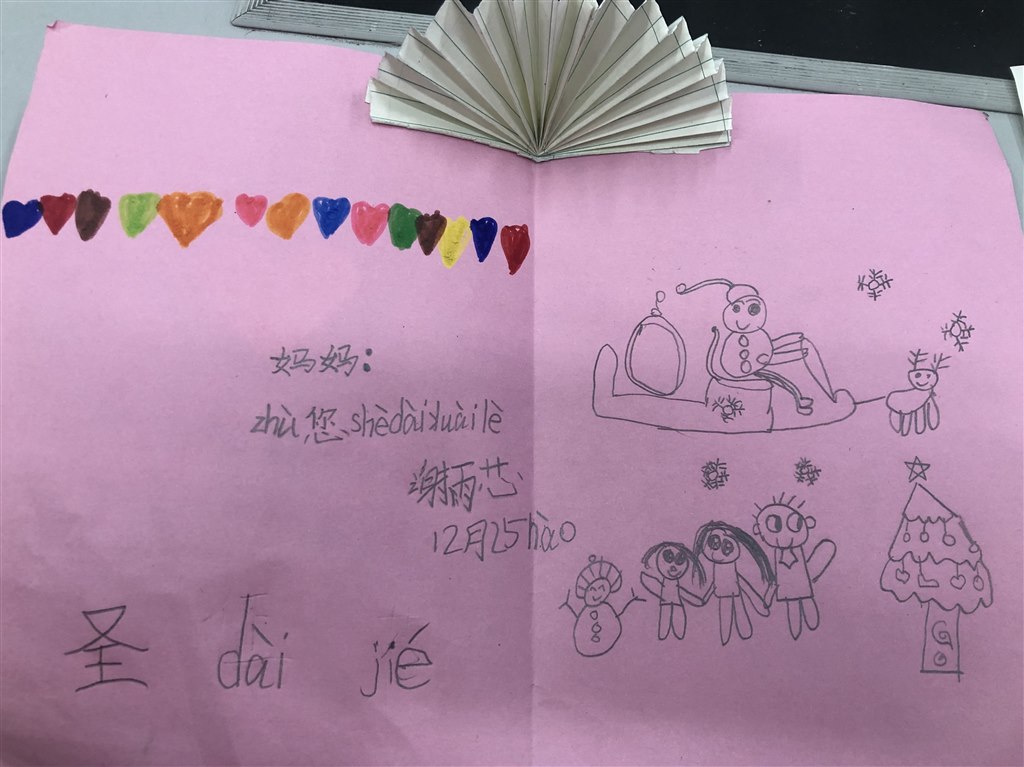 妈妈：
zhù您shèdàikuàilè
谢雨芯
12月25hào
圣 dài jié
Go